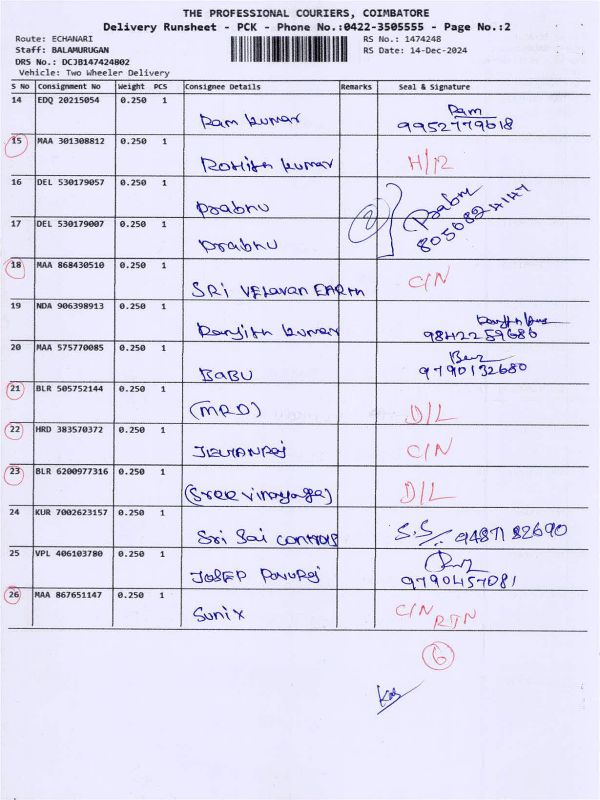 THE PROFESSIONAL COURIERS, COIMBATORE
Delivery Runsheet - PCK - Phone No.:0422-3505555 - Page No.:2
Route: ECHANARI RS No.: 1474248
Staff: BALAMURUGAN RS Date: 14-Dec-2024
DRS No.: DCJB147424802
Vehicle: Two Wheeler Delivery
S No Consignment No Weight PCS Consignee Details Remarks Seal & Signature
14 EDQ 20215054 0.250 1 Ram kumar Ram
9952779618
15 MAA 301308812 0.250 1 Rohith kumar H/R
16 DEL 530179057 0.250 1 Prabhu
17 DEL 530179007 0.250 1 Prabhu 2 Prabu
18 MAA 868430510 0.250 1 SRi VELAVAN EARTH C/N
19 NDA 906398913 0.250 1 Ranjith kumar
9842259686
20 MAA 575770085 0.250 1 BABU
9790132680
21 BLR 505752144 0.250 1 (MRD) D/L
22 HRD 383570372 0.250 1 C/N
23 BLR 6200977316 0.250 1 (Sree Vinayaga) D/L
24 KUR 7002623157 0.250 1 Sri Sai controls S.S 9487182690
25 VPL 406103780 0.250 1 JOSEP
9790457081
26 MAA 867651147 0.250 1 Sunix C/N RTN
6